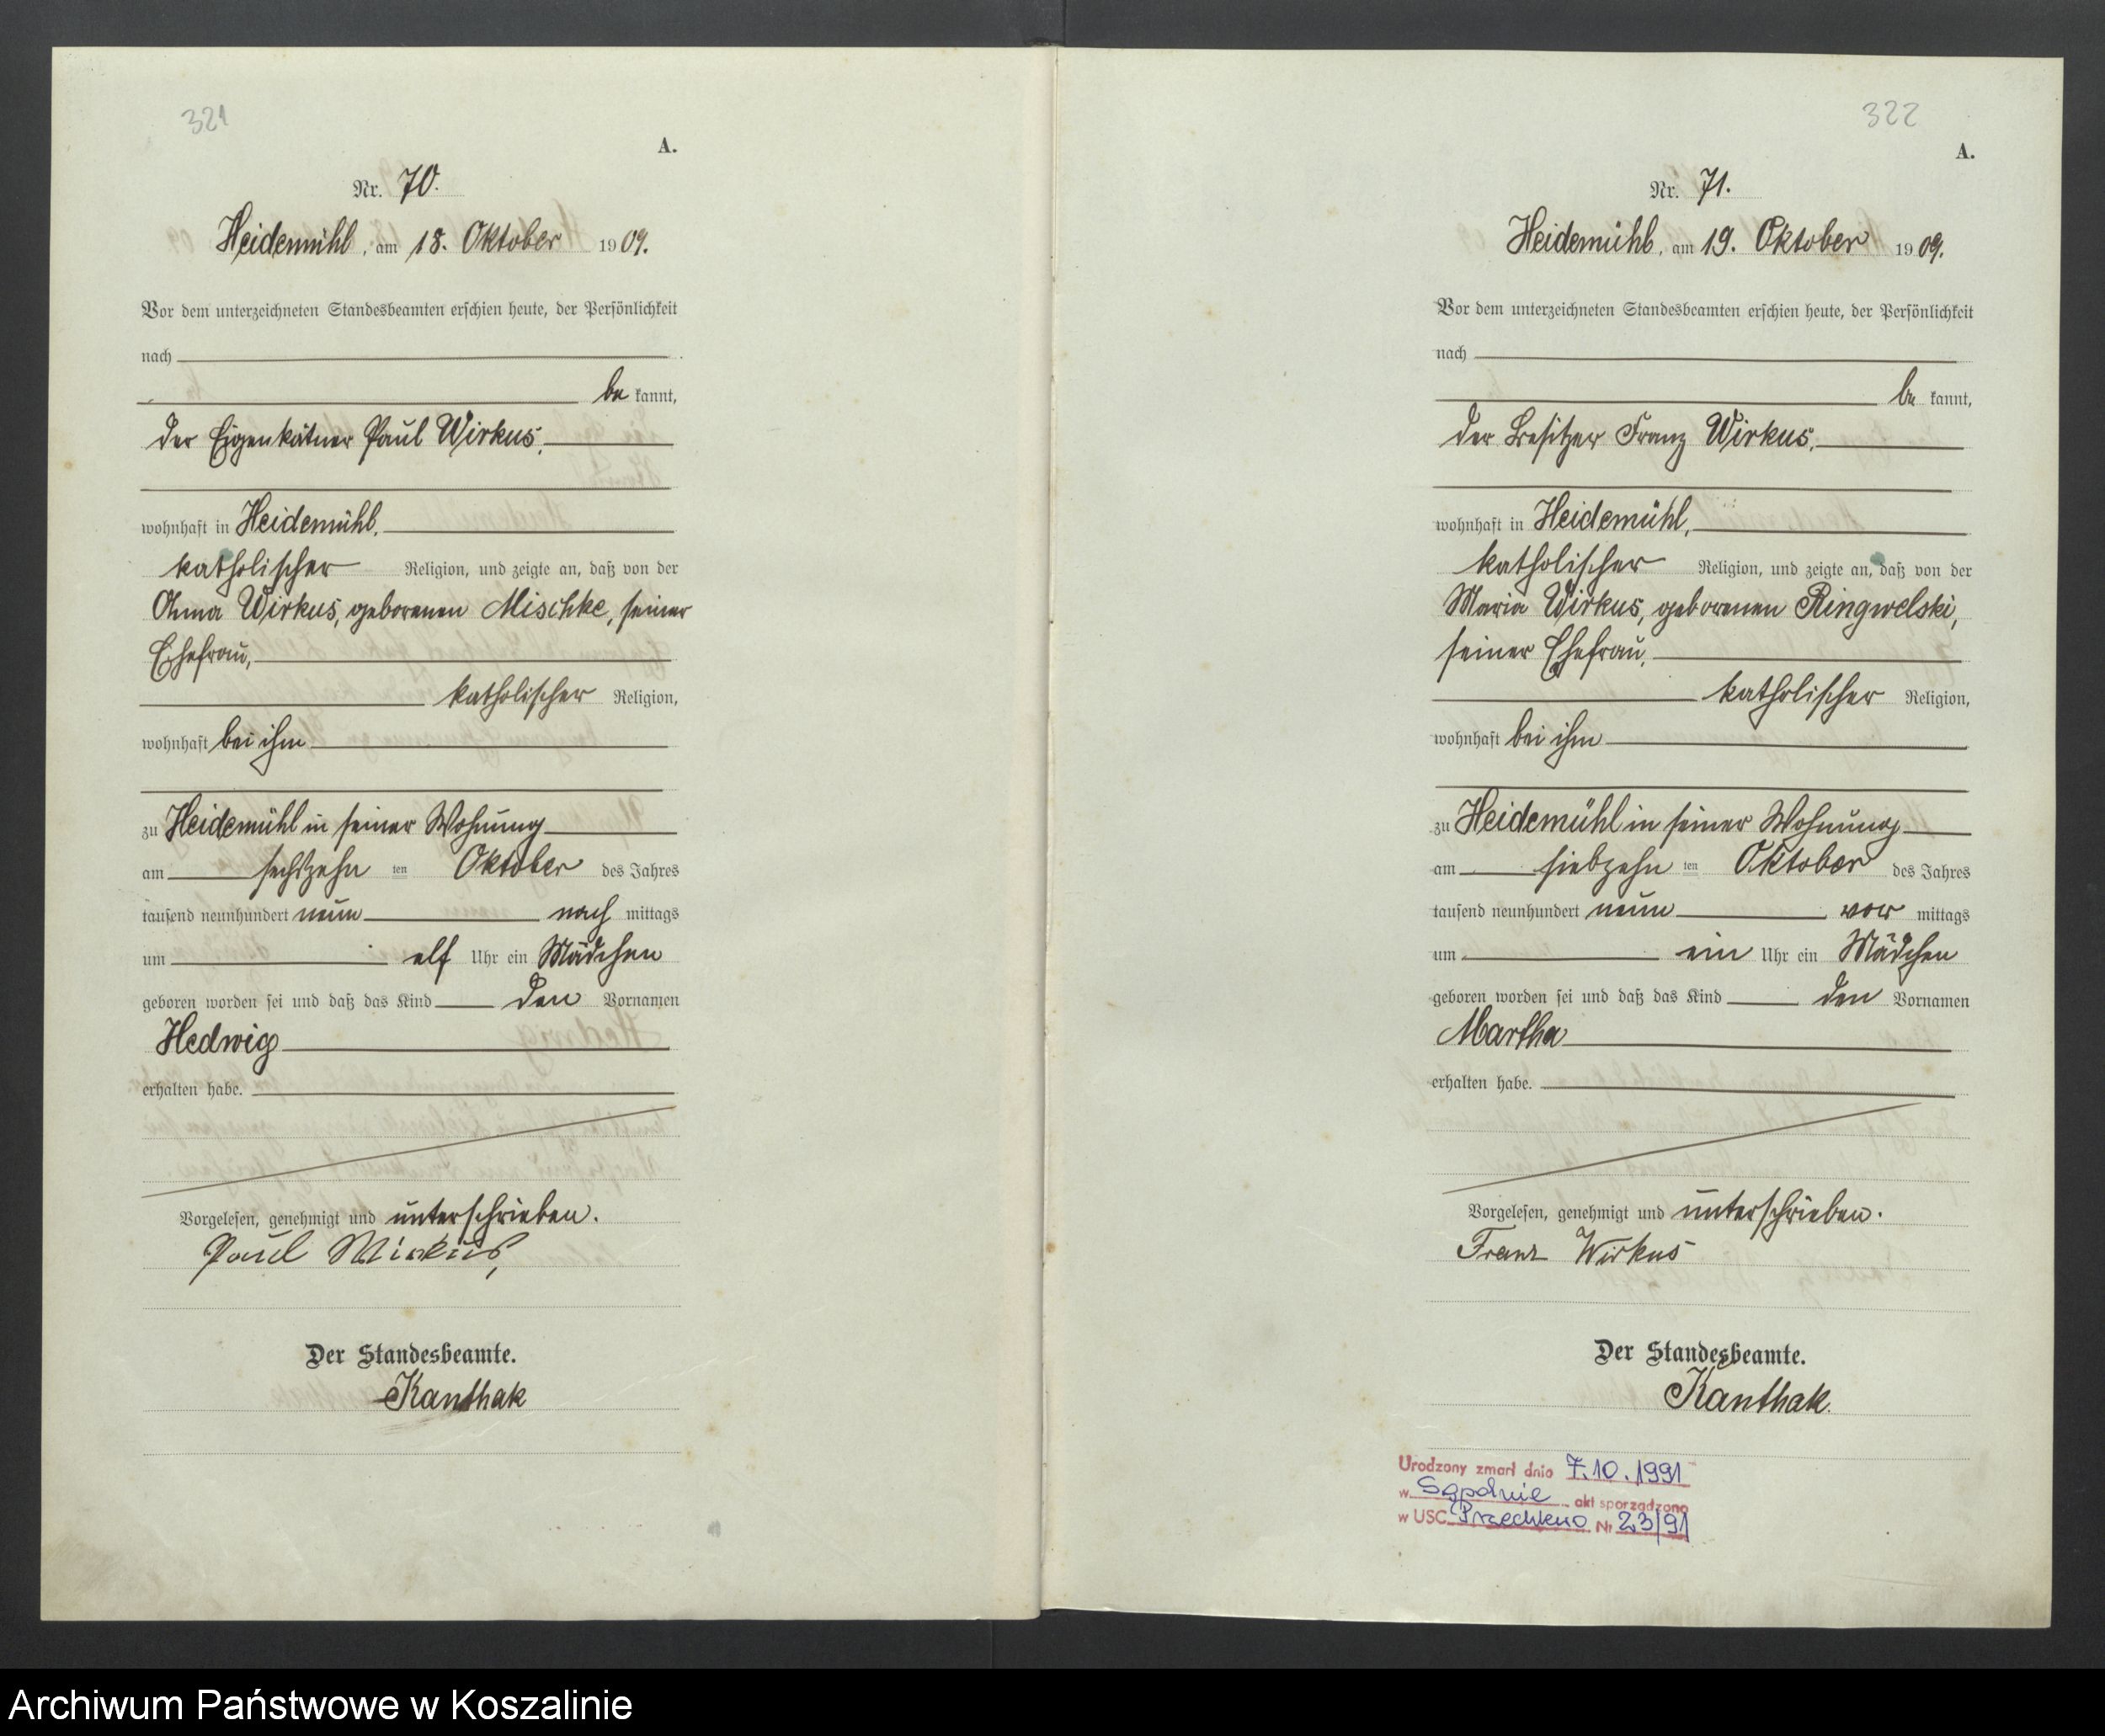 321
A.
Nr. 70.
Heidemühl, am 18. Oktober 1909.
Vor dem unterzeichneten Standesbeamten erschien heute, der Persönlichkeit
nach
be kannt,
der Eigenkätner Paul Wirkus,
wohnhaft in Heidemühl,
katholischer Religion, und zeigte an, daß von der
Anna Wirkus, geborenen Mischke, seiner
Ehefrau,
katholischer Religion,
wohnhaft bei ihm
zu Heidemühl in seiner Wohnung
am sechszehn ten Oktober des Jahres
tausend neunhundert neun nach mittags
um elf Uhr ein Mädchen
geboren worden sei und daß das Kind den Vornamen
Hedwig
erhalten habe.
Vorgelesen, genehmigt und unterschrieben.
Paul Wirkus,
Der Standesbeamte.
Kanthak
322
A.
Nr. 71.
Heidemühl, am 19. Oktober 1909.
Vor dem unterzeichneten Standesbeamten erschien heute, der Persönlichkeit
nach
be kannt,
der Besitzer Franz Wirkus,
wohnhaft in Heidemühl,
katholischer Religion, und zeigte an, daß von der
Maria Wirkus, geborenen Ringwelski,
seiner Ehefrau,
katholischer Religion,
wohnhaft bei ihm
zu Heidemühl in seiner Wohnung
am siebzehn ten Oktober des Jahres
tausend neunhundert neun vor mittags
um ein Uhr ein Mädchen
geboren worden sei und daß das Kind den Vornamen
Martha
erhalten habe.
Vorgelesen, genehmigt und unterschrieben.
Franz Wirkus
Der Standesbeamte.
Kanthak.
Urodzony zmarł dnia 7.10.1991
w Sąpolnie akt sporządzono
w USC Przechlewo Nr 23/91
Archiwum Państwowe w Koszalinie